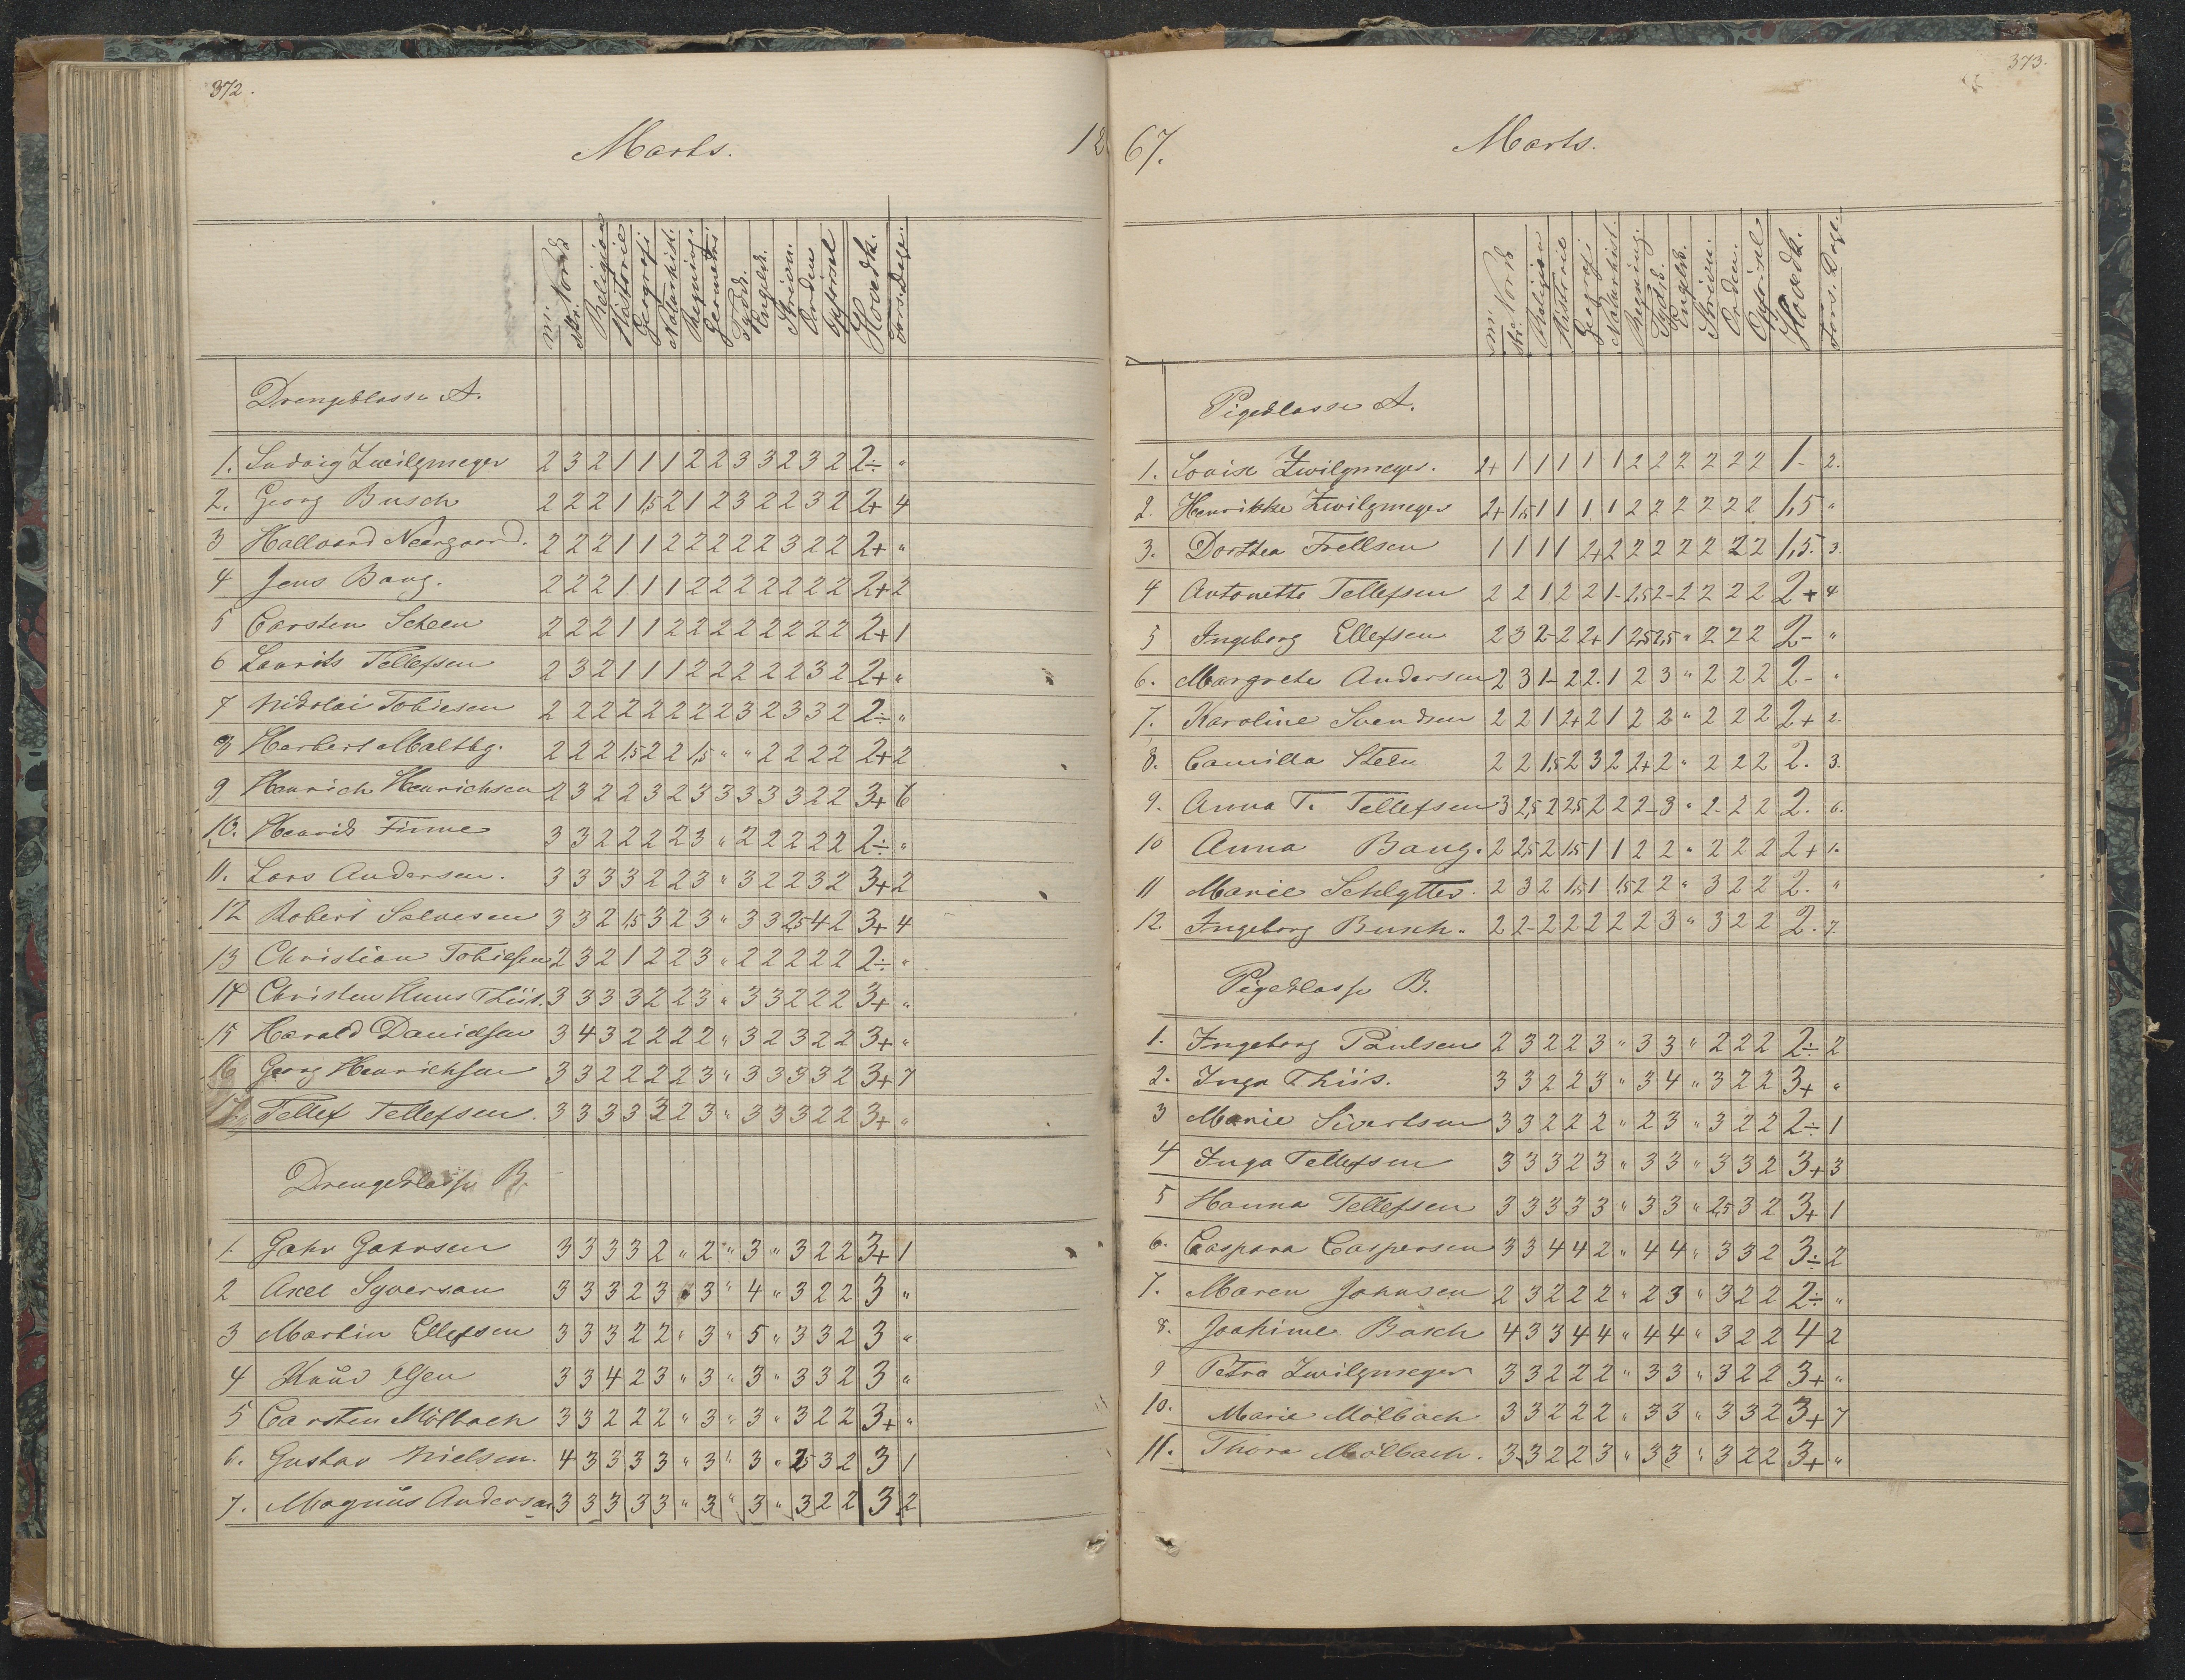 372.
Marts.
18
mr. Norsk
skr. Norsk
Religion
Historie
Geografi
Naturhist.
Regning.
Geometri.
Tydsk.
Engelsk.
Skrivn.
Orden
Opførsel
Hovedk.
Fors. Dage.
Drengeklasse A.
1. Ludvig Zwilgmeyer 2 3 2 1 1 1 2 2 3 3 2 3 2 2÷ "
2. Georg Busch 2 2 2 1 1,5 2 1 2 3 2 2 3 2 2+ 4
3 Hallvard Neergaard. 2 2 2 1 1 2 2 2 2 2 3 2 2 2+ "
4 Jens Bang. 2 2 2 1 1 1 2 2 2 2 2 2 2 2+ 2
5 Carsten Scheen 2 2 2 1 1 2 2 2 2 2 2 2 2 2+ 1
6 Laurits Tellefsen 2 3 2 1 1 1 2 2 2 2 2 3 2 2+ "
7 Nikolai Tobiesen 2 2 2 2 2 2 2 2 3 2 3 3 2 2÷ "
8 Herbert Maltbg. 2 2 2 1,5 2 2 1,5 " " 2 2 2 2 2+ 2
9 Henrich Henrichsen 2 3 2 2 3 2 3 3 3 3 3 2 2 3+ 6
10. Henrik Finne 3 3 2 2 2 2 3 " 2 2 2 2 2 2÷ "
11. Lars Andersen. 3 3 3 3 2 2 3 " 3 2 2 3 2 3+ 2
12 Robert Salvesen 3 3 2 1,5 3 2 3 " 3 3 2,5 4 2 3+ 4
13 Christian Tobiesen 2 3 2 1 2 2 3 " 2 2 2 2 2 2÷ "
14 Christen Huus Thiis. 3 3 3 3 2 2 3 " 3 3 2 2 2 3+ "
15 Harald Danielsen 3 4 3 2 2 2 2 " 3 2 3 2 2 3+ "
16 Georg Henrichsen 3 3 2 2 2 2 3 " 3 3 3 3 2 3+ 7
17 Tellef Tellefsen. 3 3 3 3 3 2 3 " 3 3 3 2 2 3+ "
Drengeklasse B.
1. Gahr Gahrsen 3 3 3 3 2 " 2 " 3 " 3 2 2 3+ 1
2 Axel Syversen 3 3 3 2 3 " 3 " 4 " 3 2 2 3 "
3 Martin Ellefsen 3 3 3 2 2 " 3 " 5 " 3 3 2 3 "
4 Knud Olsen 3 3 4 2 3 " 3 " 3 " 3 3 2 3 "
5 Carsten Mölbach 3 3 2 2 2 " 3 " 3 " 3 2 2 3+ "
6. Gustav Nielsen. 4 3 3 3 3 " 3 " 3 " 2,5 3 2 3 1
7. Magnus Andersen 3 3 3 3 3 " 3 " 3 " 3 2 2 3 2
373.
67.
Marts.
mr. Norsk
skr.
Religion
Historie
Geografi
Naturhist.
Regning.
Tydsk.
Engelsk.
Skrivn.
Orden.
Opførsel
Hovedk.
Fors. Dage.
Pigeklasse A.
1. Lovise Zwilgmeyer. 2+ 1 1 1 1 1 2 2 2 2 2 2 1- 2.
2. Henrikke Zwilgmeyer 2+ 1,5 1 1 1 1 2 2 2 2 2 2 1,5 "
3. Dorthea Frellsen 1 1 1 1 2+ 2 2 2 2 2 2 2 1,5. 3.
4 Antonette Tellefsen 2 2 1 2 2 1- 2,5 2- 2 2 2 2 2+ 4
5 Ingeborg Ellefsen 2 3 2- 2 2+ 1 2,5 2,5 " 2 2 2 2- "
6. Margrete Andersen 2 3 1- 2 2. 1 2 3 " 2 2 2 2- "
7. Karoline Svendsen 2 2 1 2+ 2 1 2 2 " 2 2 2 2+ 2.
8. Camilla Steen 2 2 1,5 2 3 2 2+ 2 " 2 2 2 2. 3.
9. Anna T. Tellefsen 3 2,5 2 2,5 2 2 2- 3 " 2- 2 2 2. 6.
10 Anna Bang. 2 2,5 2 1,5 1 1 2 2 " 2 2 2 2+ 1.
11 Marie Schlytter. 2 3 2 1,5 1 1,5 2 2 " 3 2 2 2. "
12. Ingeborg Busch. 2 2- 2 2 2 2 2 3 " 3 2 2 2. 7.
Pigeklasse B.
1. Ingeborg Paulsen 2 3 2 2 3 " 3 3 " 2 2 2 2÷ 2
2. Inga Thiis. 3 3 2 2 3 " 3 4 " 3 2 2 3+ "
3 Marie Sivertsen 3 3 2 2 2 " 2 3 " 3 2 2 2÷ 1
4 Inga Tellefsen 3 3 3 2 3 " 3 3 " 3 3 2 3+ 3
5 Hanna Tellefsen 3 3 3 3 3 " 3 3 " 2,5 3 2 3+ 1
6. Caspara Caspersen 3 3 4 4 2 " 4 4 " 3 3 2 3÷ 2
7. Maren Johnsen 2 3 2 2 2 " 2 3 " 3 2 2 2÷ "
8. Joakime Basch 4 3 3 4 4 " 4 4 " 3 2 2 4 2
9 Petra Zwilgmeyer 3 3 2 2 2 " 3 3 " 3 2 2 3+ "
10. Marie Mölbach 3 3 2 2 2 " 3 3 " 3 3 2 3+ 7
11. Thora Mölbach. 3 3 2 2 3 " 3 3 " 3 2 2 3+ "